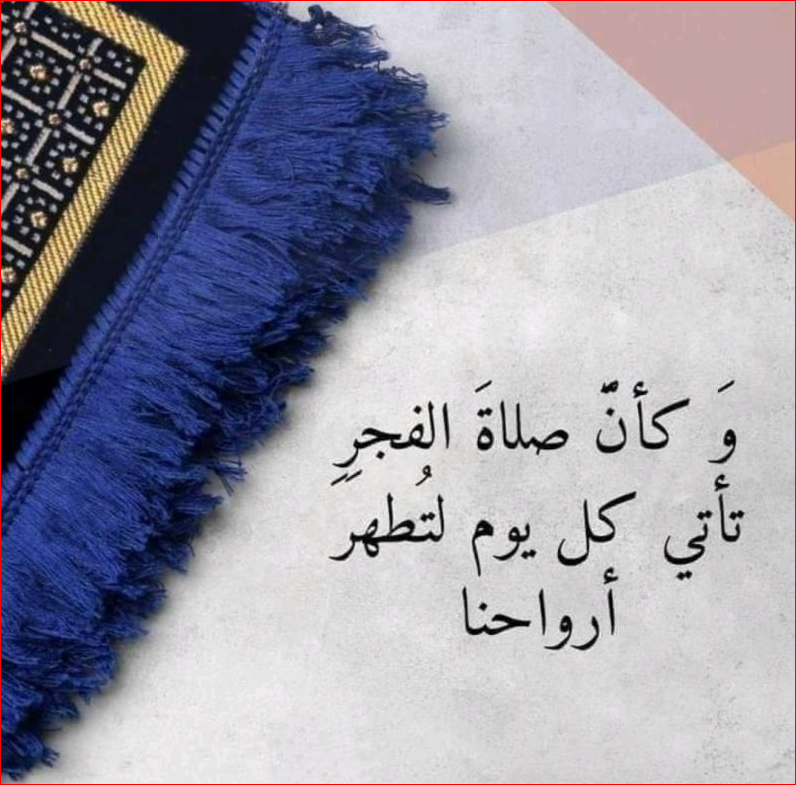 وَ كأنّ صلاةَ الفجرِ
تأتي كل يوم لتُطهرَ
أرواحنا